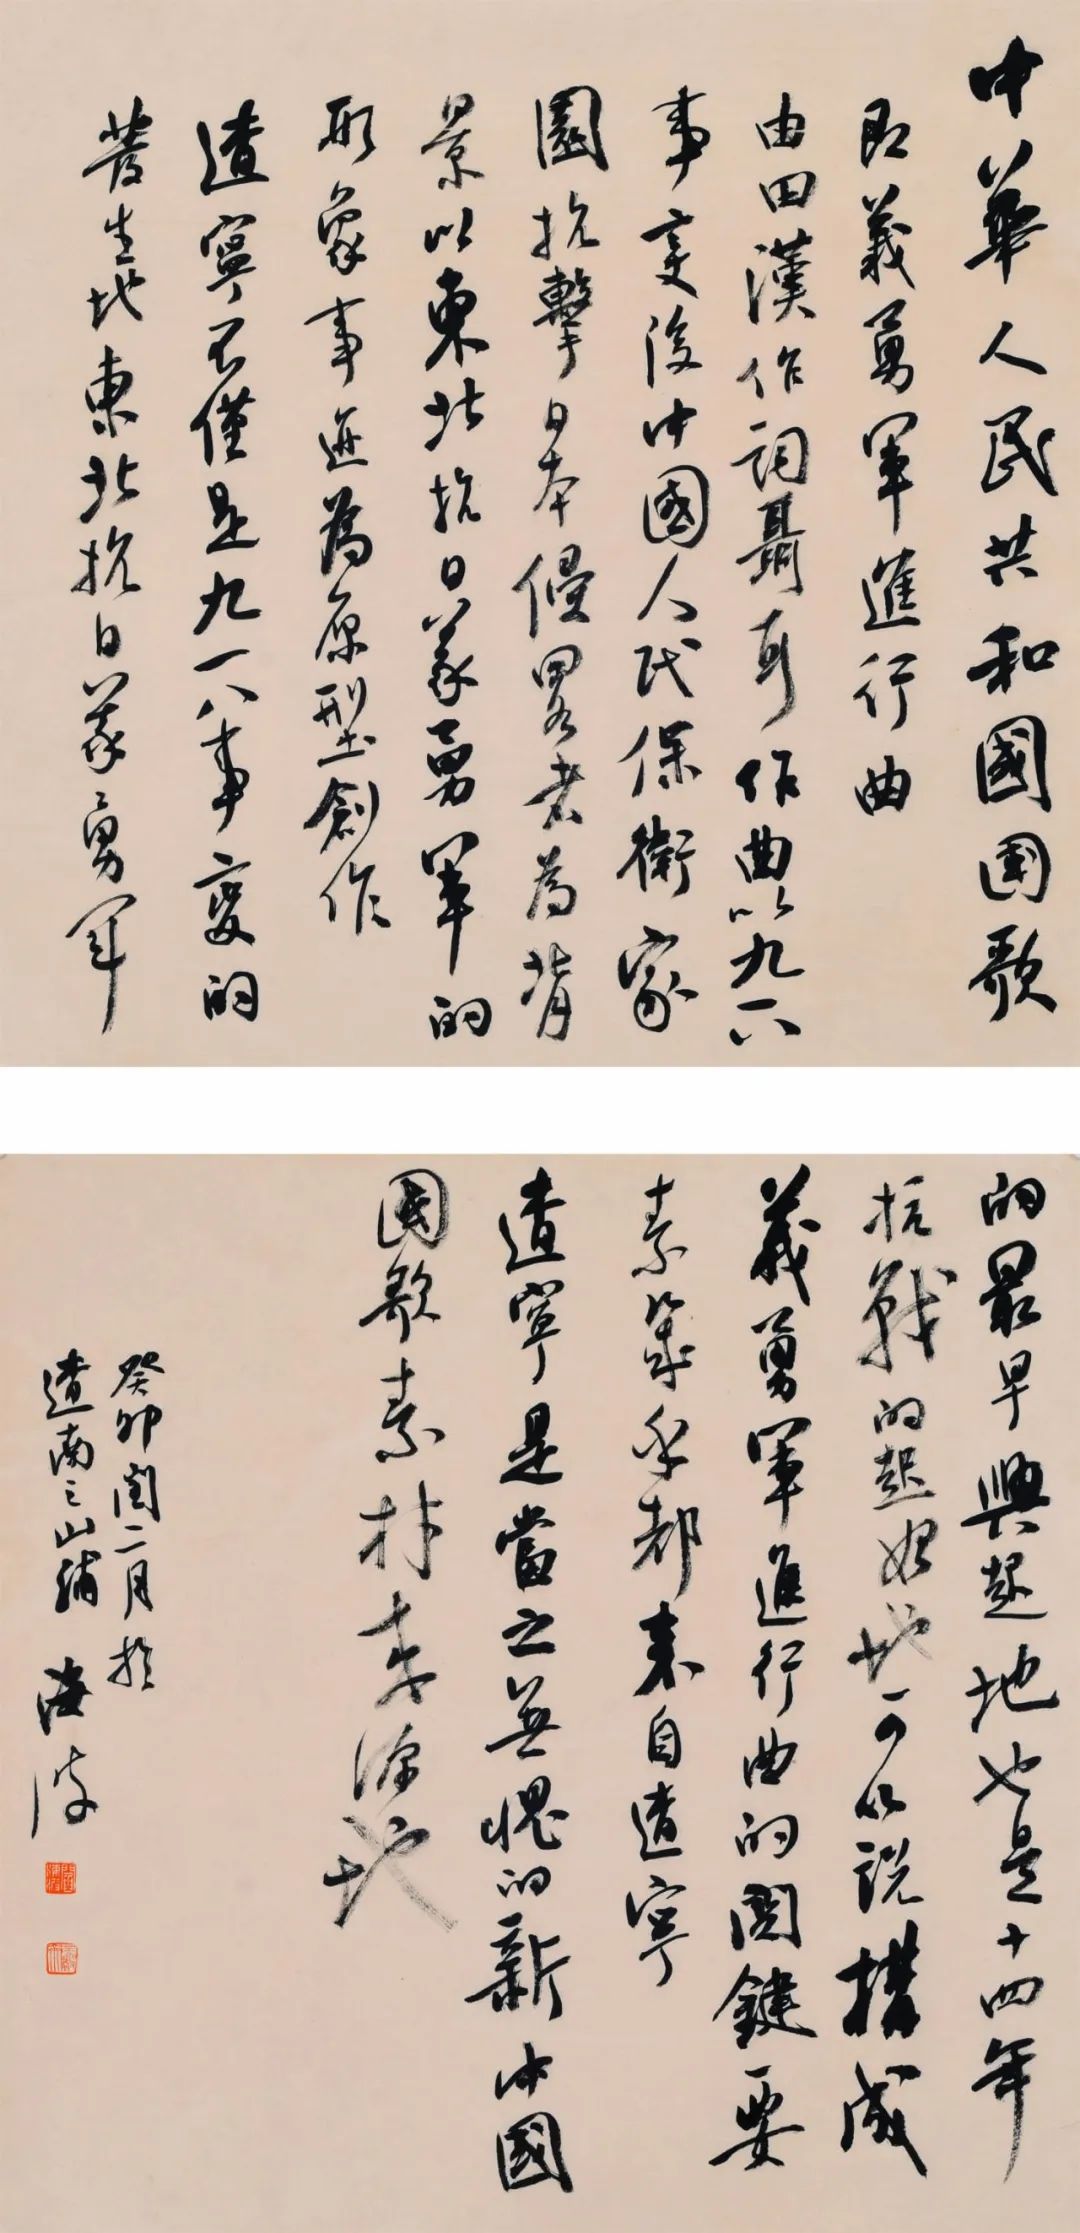 中華人民共和國國歌
即義勇軍進行曲
由田漢作詞聶耳作曲以九一八
事变後中國人民保衛家
園抗擊日本侵畧者為背
景以東北抗日義勇軍的
形象事迹為原型創作
遼寧不僅是九一八事變的
發生地東北抗日義勇军
的最早興起地也是十四年
抗戰的起始地可以説構成
義勇軍進行曲的関鍵要
素幾乎都来自遼寧
遼寧是當之無愧的新中國
國歌素材李源地
癸卯閏二月於
遼南之山铺 海波